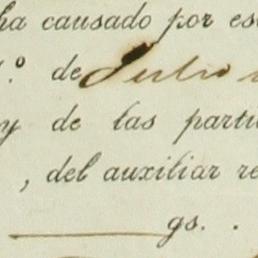 ha causado por es
1.º de Julio
y de las parti
, del auxiliar re
gs. .